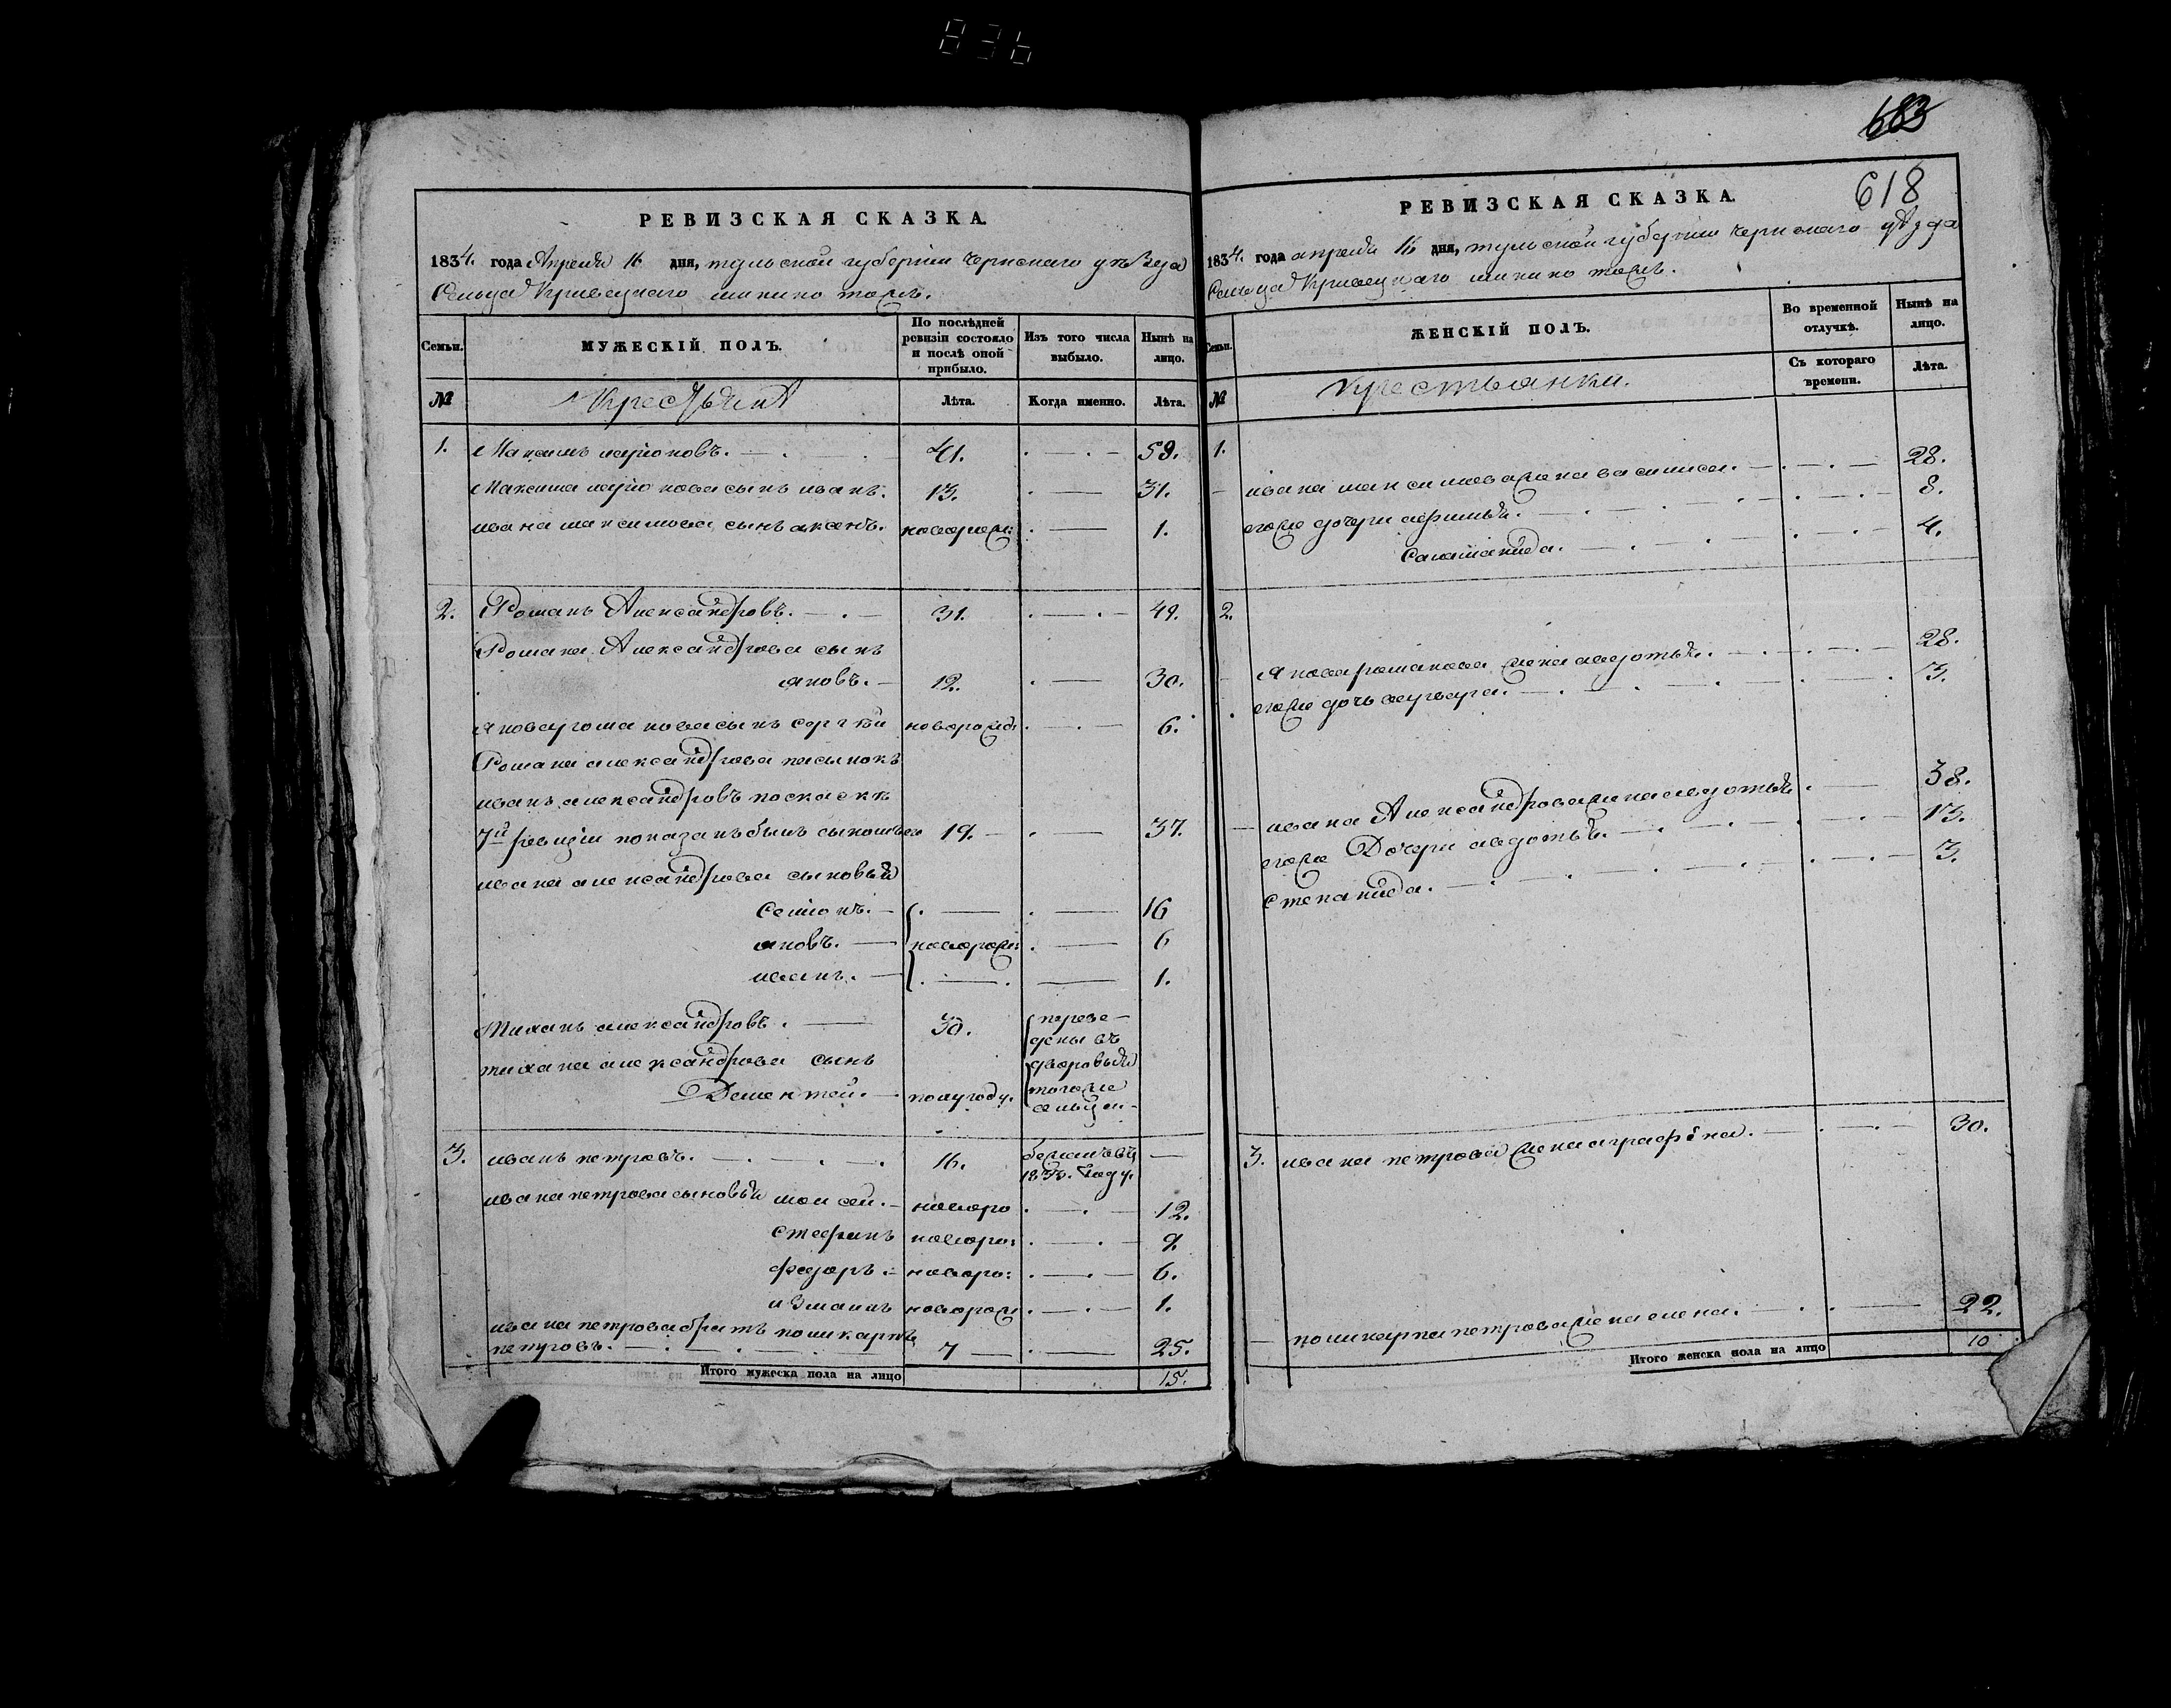 836
683
618
РЕВИЗСКАЯ СКАЗКА.
1834. года Апреля 16 дня, тульской губернии Чернского уѣзда
Сельца Кривецкаго
МУЖЕСКІЙ ПОЛЪ.
Семьи.
По послѣдней ревизіи состояло и послѣ оной прибыло.
Изъ того числа выбыло.
Нынѣ на лицо.
№
Крестьянѣ
Лѣта.
Когда именно.
Лѣта.
1. Максимъ 41. 59.
Максима сынъ иванъ. 13. 31.
ивана максимова сынъ аксенъ. новорож: 1.
2. Романъ Александровъ. 31. 49.
Романа Александрова сынъ
яковъ. 12. 30.
якова романова сынъ сергѣй новорожд: 6.
Романа александрова пасынокъ
иванъ александровъ по скаскѣ
7й ревизіи показанъ былъ сыномъ его 19. 37.
ивана александрова сыновья
Семіонъ. 16
яковъ. новорож: 6
иванъ. 1.
Тиханъ александровъ. 30. переве-
дены въ
тихана александрова сынъ дворовыя
Дементей. полугоду. тогоже
сельца
3. иванъ петровъ. 16. бежалъ въ
году.
ивана петрова сыновья моисей. новоро 12.
стефанъ новоро: 9.
федоръ новоро: 6.
измаилъ новорож 1.
ивана петрова братъ поликарпъ
петровъ. 7 25.
Итого мужеска пола на лицо 15.
РЕВИЗСКАЯ СКАЗКА.
1834. года апреля 16 дня, тульской губернии Чернского уѣзда
Сельца Кривецкаго
Семьи.
ЖЕНСКІЙ ПОЛЪ.
Во временной отлучкѣ.
Нынѣ на лицо.
Съ котораго времени.
Лѣта.
№
Крестьянки.
1.
ивана максимова жена василиса. 28.
егоже дочери афимья. 8.
Саламанида. 4.
2.
якова романова жена авдотья. 28.
егоже дочь варвара. 3.
ивана Александрова жена авдотья 38.
егоже Дочери авдотья. 13.
степанида. 3.
3. ивана петрова жена аграфѣна. 30.
поликарпа петрова жена елена. 22.
Итого женска пола на лицо 10